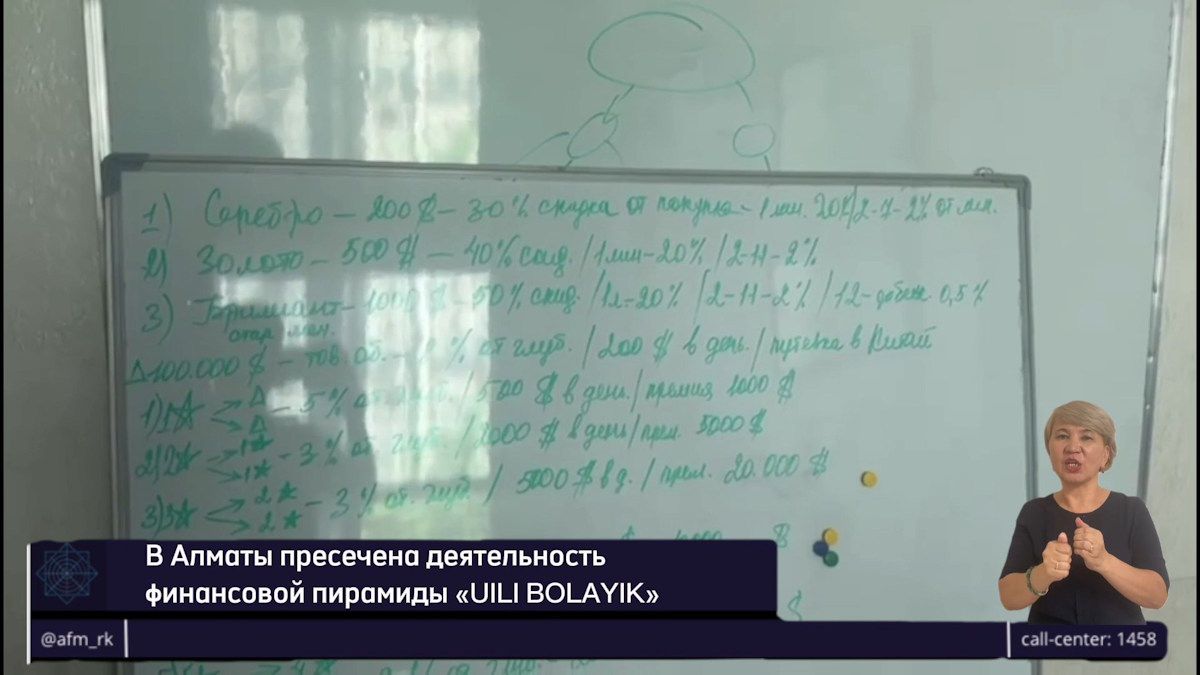 1) Серебро - 200 $ - 30 % скидка от покупка - 1 лин. 20%/2-7-2% от лич.
2) Золото - 500 $ - 40% скид. / 1 лин - 20% / 2-11-2%
3) Брилиант - 1000 $ - 50% скид. / 1л - 20% / 2-11-2% / 12- 0,5%
Δ 100.000 $ - тов. об. - % от глуб. / 200 $ в день. / путевка в Китай
1) 1☆ Δ Δ - 5% от глуб. / 500 $ в день. / премия 1000 $
2) 2☆ 1☆ 1☆ - 3% от. глуб. / 2000 $ в день / прем. 5000 $
3) 3☆ 2☆ 2☆ - 3% от. глуб. / 5000 $ в д. / прем. 20.000 $
$
$
В Алматы пресечена деятельность
финансовой пирамиды «UILI BOLAYIK»
@afm_rk
call-center: 1458